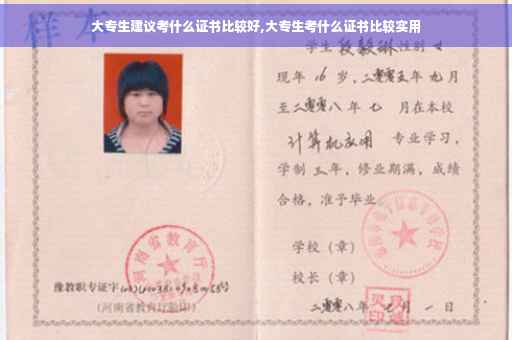 大专生建议考什么证书比较好,大专生考什么证书比较实用
样本
学生 段毅琳 性别 女
现年 16 岁,二零零五年 九月
至二零零八年 七 月在本校
计算机应用 专业学习,
学制 三 年,修业期满,成绩
合格,准予毕业
学校(章)
校长(章)
豫教职专证字
(河南省教育厅验印)
二零零八年 七 月 一 日
河南省教育厅